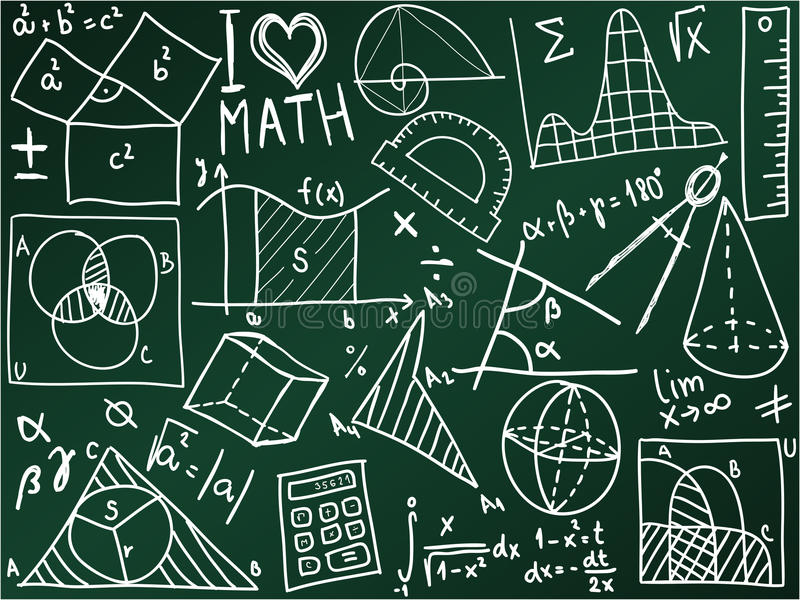 a² + b² = c²
a²
b²
c²
±
I
MATH
Σ
√x
y
f(x)
S
a
b
x
×
÷
α+β+γ=180°
β
α
A
B
C
U
%
A3
A2
A4
A1
lim
x→∞
≠
α
β
γ
√a² = |a|
C
S
r
A
B
35621
∫ 0 -1 x/√1-x² dx
1-x²=t
dx=-dt/2x
U
A
B
C
dreamstime